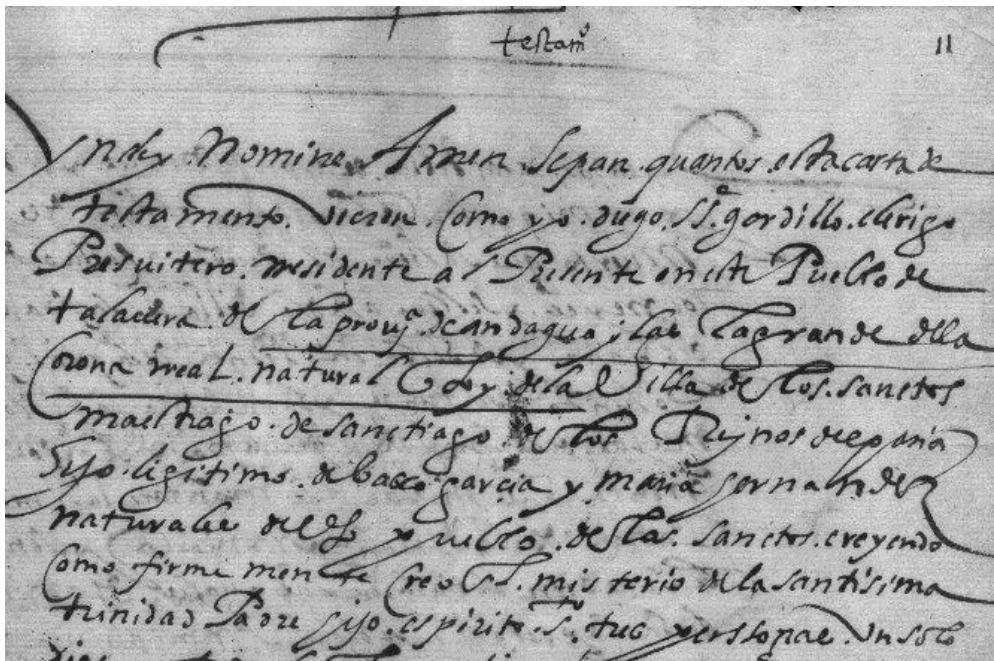 testamº
11
yn dey Nomine Amen Sepan quantos esta carta de
testamento vieren Como yo diego gordillo clerigo
Presvitero rresidente al Presente en este Pueblo de
talavera de la provª de andaguaylas la grande de la
Corona rreal natural que soy de la Villa de los sanctos
maestrazgo de sanctiago de los Reynos despaña
hijo legitimo de garcia y maria hernandez
naturales del pueblo de los sanctos creyendo
Como firme mente Creo el misterio de la santisima
trinidad Padre hijo espiritu sto tres perssonas Un solo